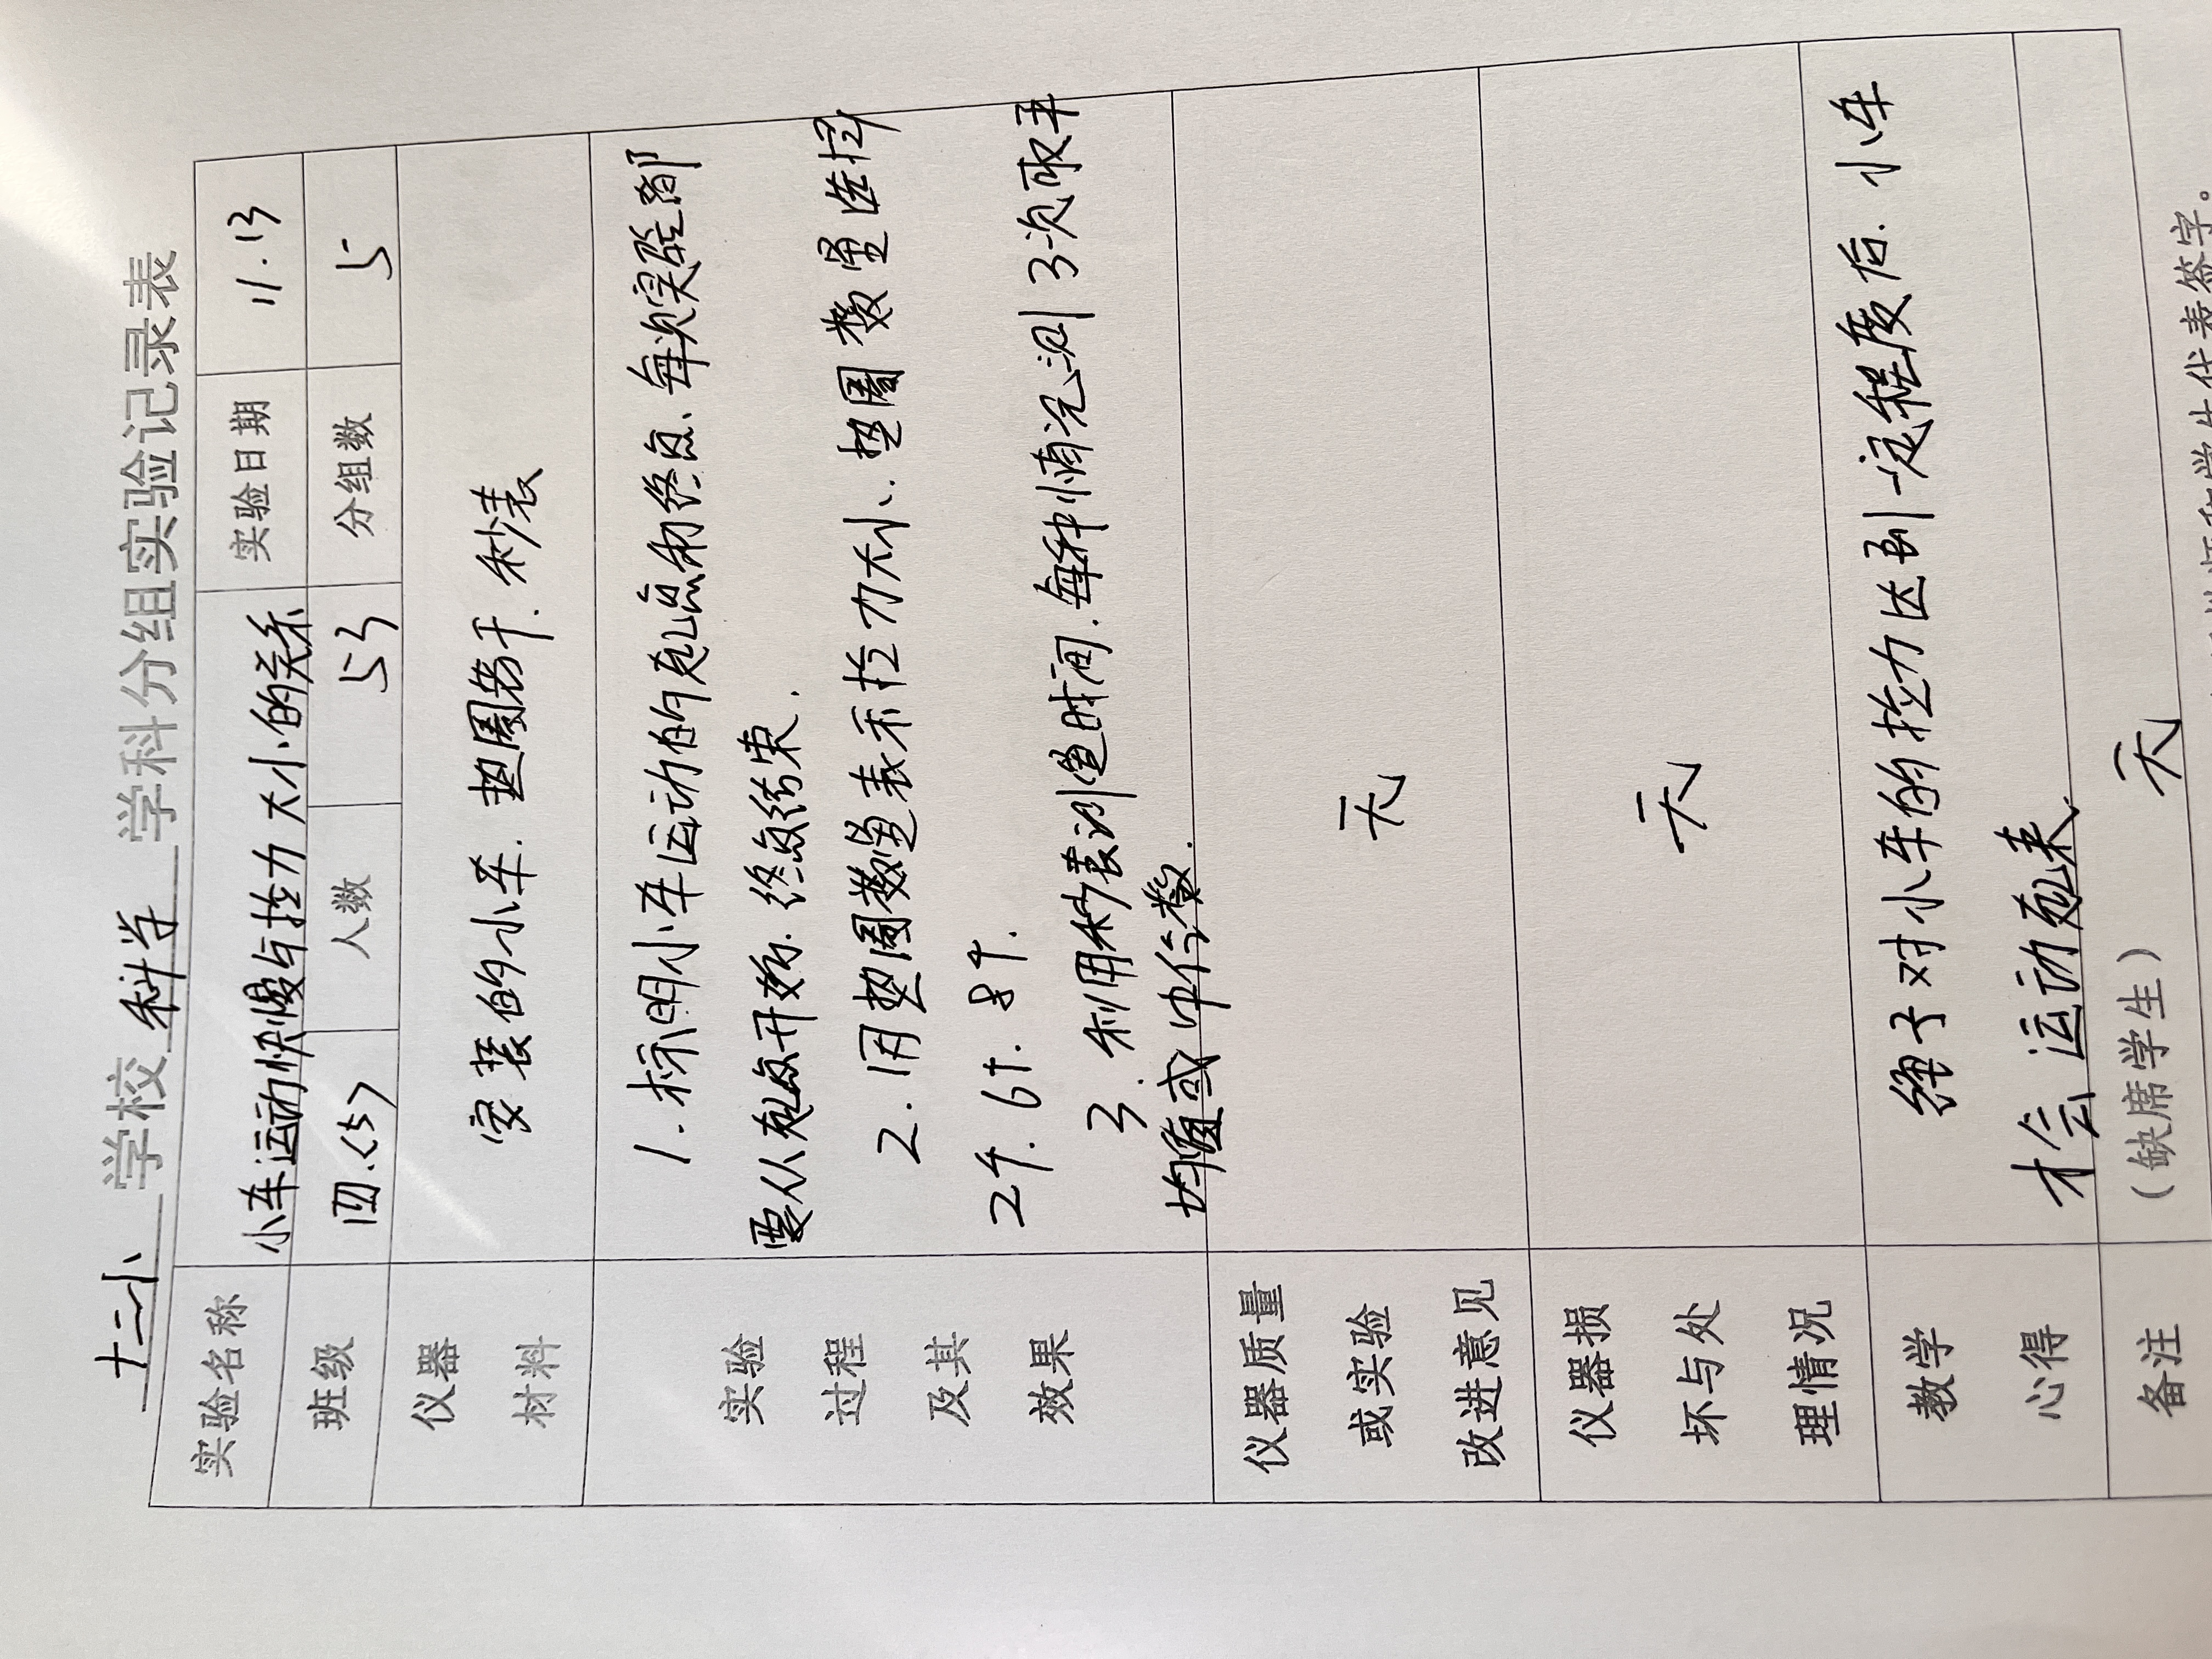 十二小 学校 科学 学科分组实验记录表
实验名称 小车运动快慢与拉力大小的关系 实验日期 11.13
班级 四.(5) 人数 53 分组数 5
仪器 安装的小车. 垫圈若干. 秒表
材料
实验 1.标明小车运动的起点和终点.每次实验都
要从起点开始.终点结束.
过程 2.用垫圈数量表示拉力大小.垫圈数量选择
及其 2个.6个.8个.
效果 3.利用秒表测量时间.每种情况测3次取平
均值或中位数.
仪器质量
或实验 无
改进意见
仪器损
坏与处 无
理情况
教学 绳子对小车的拉力达到一定程度后.小车
心得 才会运动起来
备注 (缺席学生) 无
和学生代表签字。